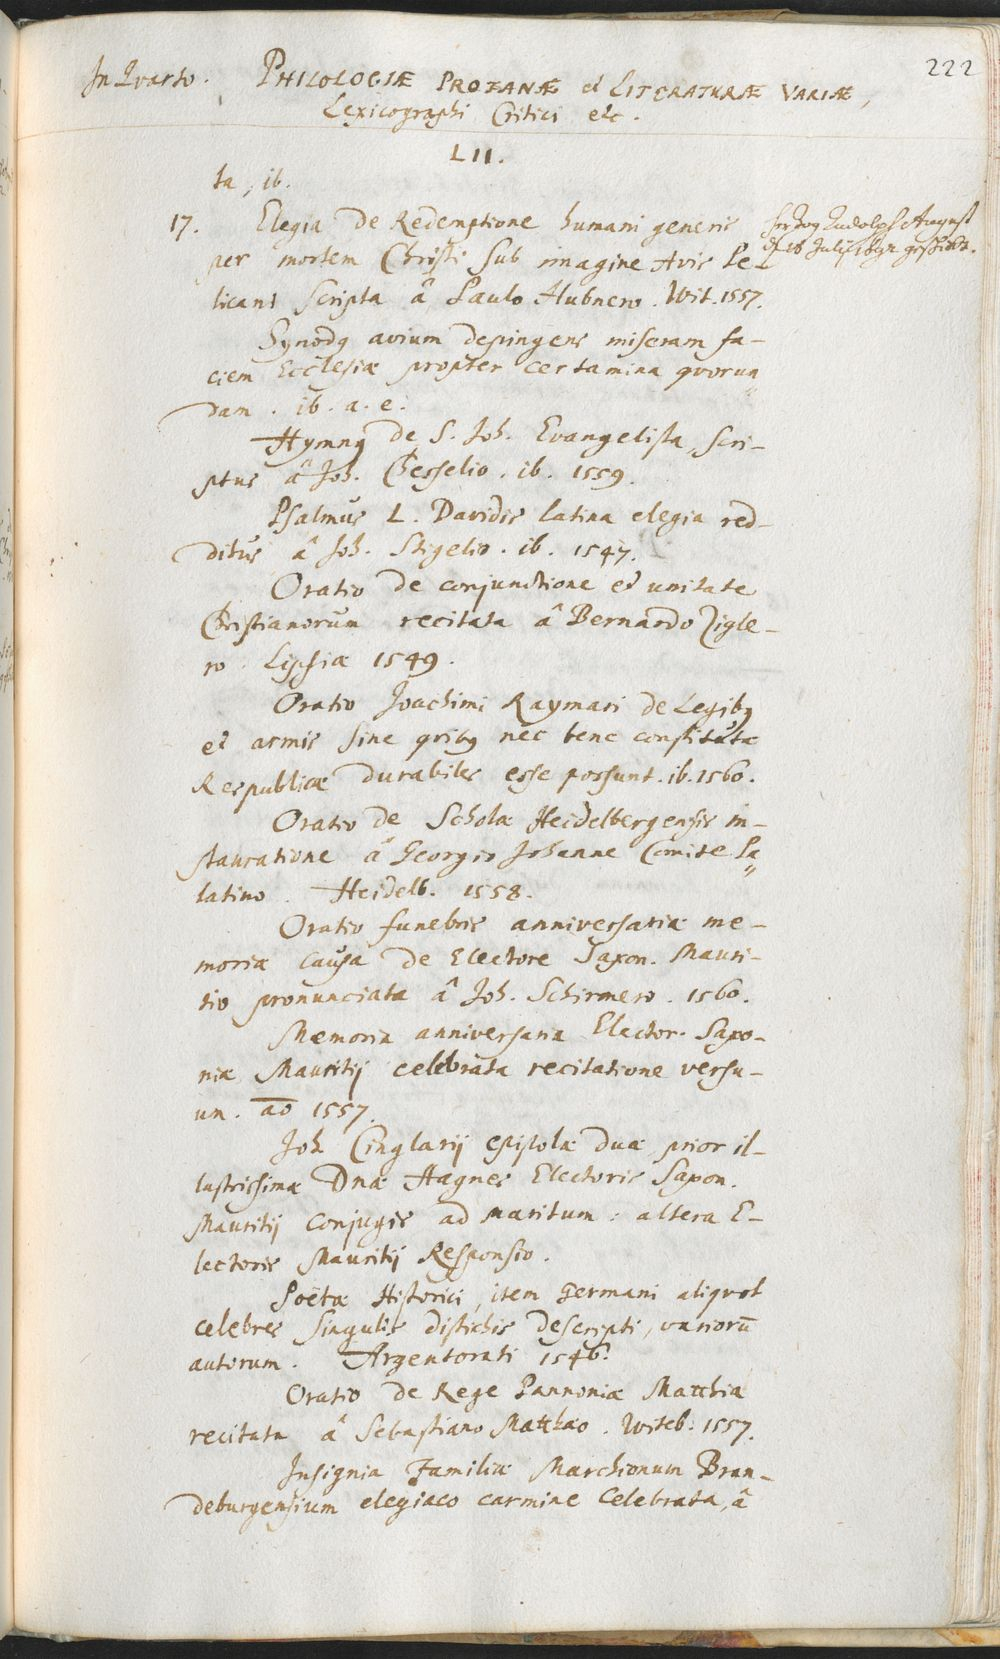 222
In Qvarto. PHILOLOGIÆ PROFANÆ et LITERATURÆ VARIÆ,
Lexicographi Critici etc.
LII.
ta, ib.
17. Elegia de Redemptione humani generis
per mortem Christi sub imagine Avis Pe-
licani scripta â Paulo Hubnero. Wit. 1557.
Herzog Rudolph August
Synodq avium depingens miseram fa-
ciem Ecclesiæ propter certamina qvorun
dam. ib. a. e.
Hymnq de S. Joh. Evangelista, scri-
ptus â Joh. Gesselio. ib. 1559.
Psalmus L. Davidis latina elegia red-
ditus â Joh. Stigelio. ib. 1547.
Oratio de conjunctione et unitate
Christianorum recitata â Bernardo Zigle-
ro. Lipsiæ 1549.
Oratio Joachimi Raymari de Legibq
et armis sine qvibq nec bene constitutæ
Respublicæ durabiles esse possunt. ib. 1560.
Oratio de Scholæ Heidelbergensis in-
stauratione â Georgio Johanne Comite Pa
latino. Heidelb. 1558.
Oratio funebris anniversariæ me-
moriæ causa de Electore Saxon. Mauri-
tio pronunciata â Joh. Schirmero. 1560.
Memoria anniversaria Elector. Saxo-
niæ Mauritij celebrata recitatione versu-
um. aō 1557.
Joh Cinglarij epistolæ duæ, prior il-
lustrissimæ Dnæ Hagnes Electoris Saxon.
Mauritij conjugis ad maritum: altera E-
lectoris Mauritij Responsio.
Poëtæ Historici, item Germani aliqvot
celebres singulis distichis descripti, variorū
autorum. Argentorati 1546.
Oratio de Rege Pannoniæ Matthia
recitata â Sebastiano Matthæo. Witeb: 1557.
Insignia Familiæ Marchionum Bran-
deburgensium elegiaco carmine celebrata, â